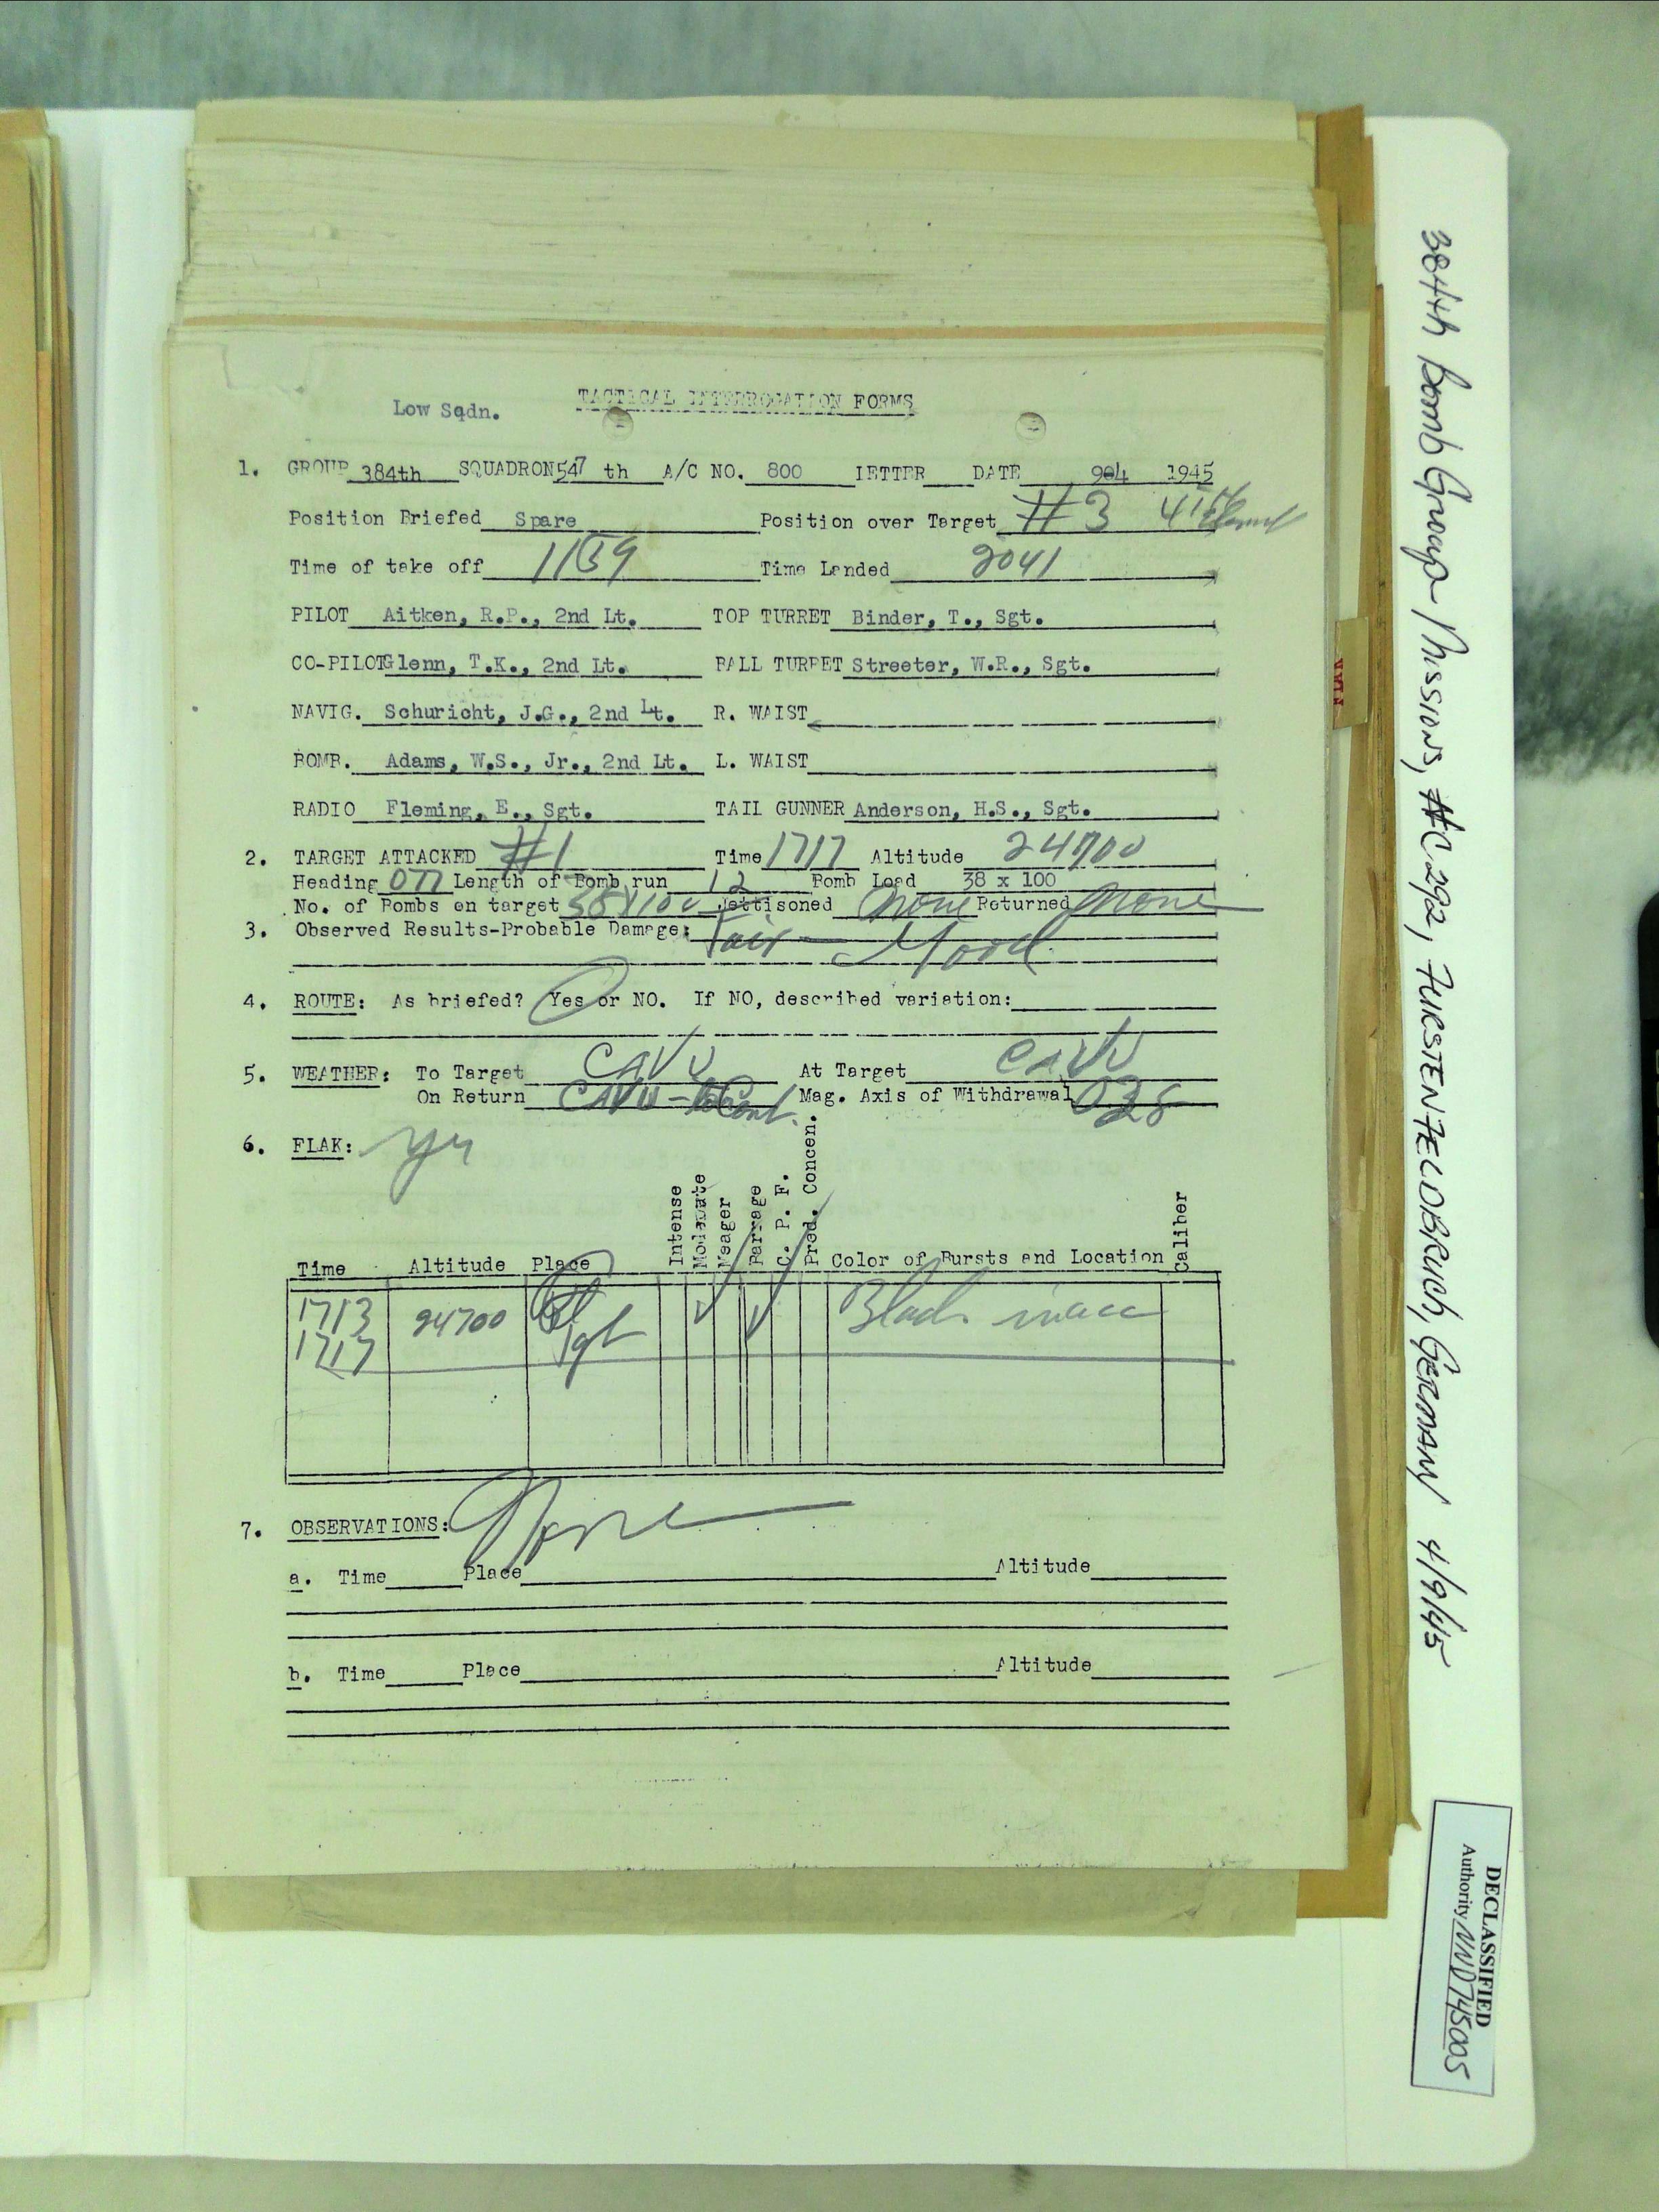 Low Sqdn. TACTICAL INTERROGATION FORMS
1. GROUP 384th SQUADRON 547 th A/C NO. 800 LETTER DATE 904 1945
Position Briefed Spare Position over Target #3 4th
Time of take off Time Landed 2041
PILOT Aitken, R.P., 2nd Lt. TOP TURRET Binder, T., Sgt.
CO-PILOT Glenn, T.K., 2nd Lt. BALL TURRET Streeter, W.R., Sgt.
NAVIG. Schuricht, J.G., 2nd Lt. R. WAIST
BOMB. Adams, W.S., Jr., 2nd Lt. L. WAIST
RADIO Fleming, E., Sgt. TAIL GUNNER Anderson, H.S., Sgt.
2. TARGET ATTACKED #1 Time 1717 Altitude 24700
Heading 077 Length of Bomb run 12 Bomb Load 38 x 100
No. of Bombs on target 38X100 Jettisoned None Returned None
3. Observed Results-Probable Damage: Fair - Good
4. ROUTE: As briefed? Yes or NO. If NO, described variation:
5. WEATHER: To Target CAVU At Target CAVU
On Return CAVU - Mag. Axis of Withdrawal 038
6. FLAK: yes
Time Altitude Place Intense Moderate Meager Barrage C. P. F. Pred. Concen. Color of Bursts and Location Caliber
1713 24700 Black inacc
1717 Tgt
7. OBSERVATIONS: None
a. Time Place Altitude
b. Time Place Altitude
384th Bomb Group Missions, #C292, FURSTENFELDBRUCH, GERMANY 4/9/45
DECLASSIFIED
Authority NND745005
FLAK